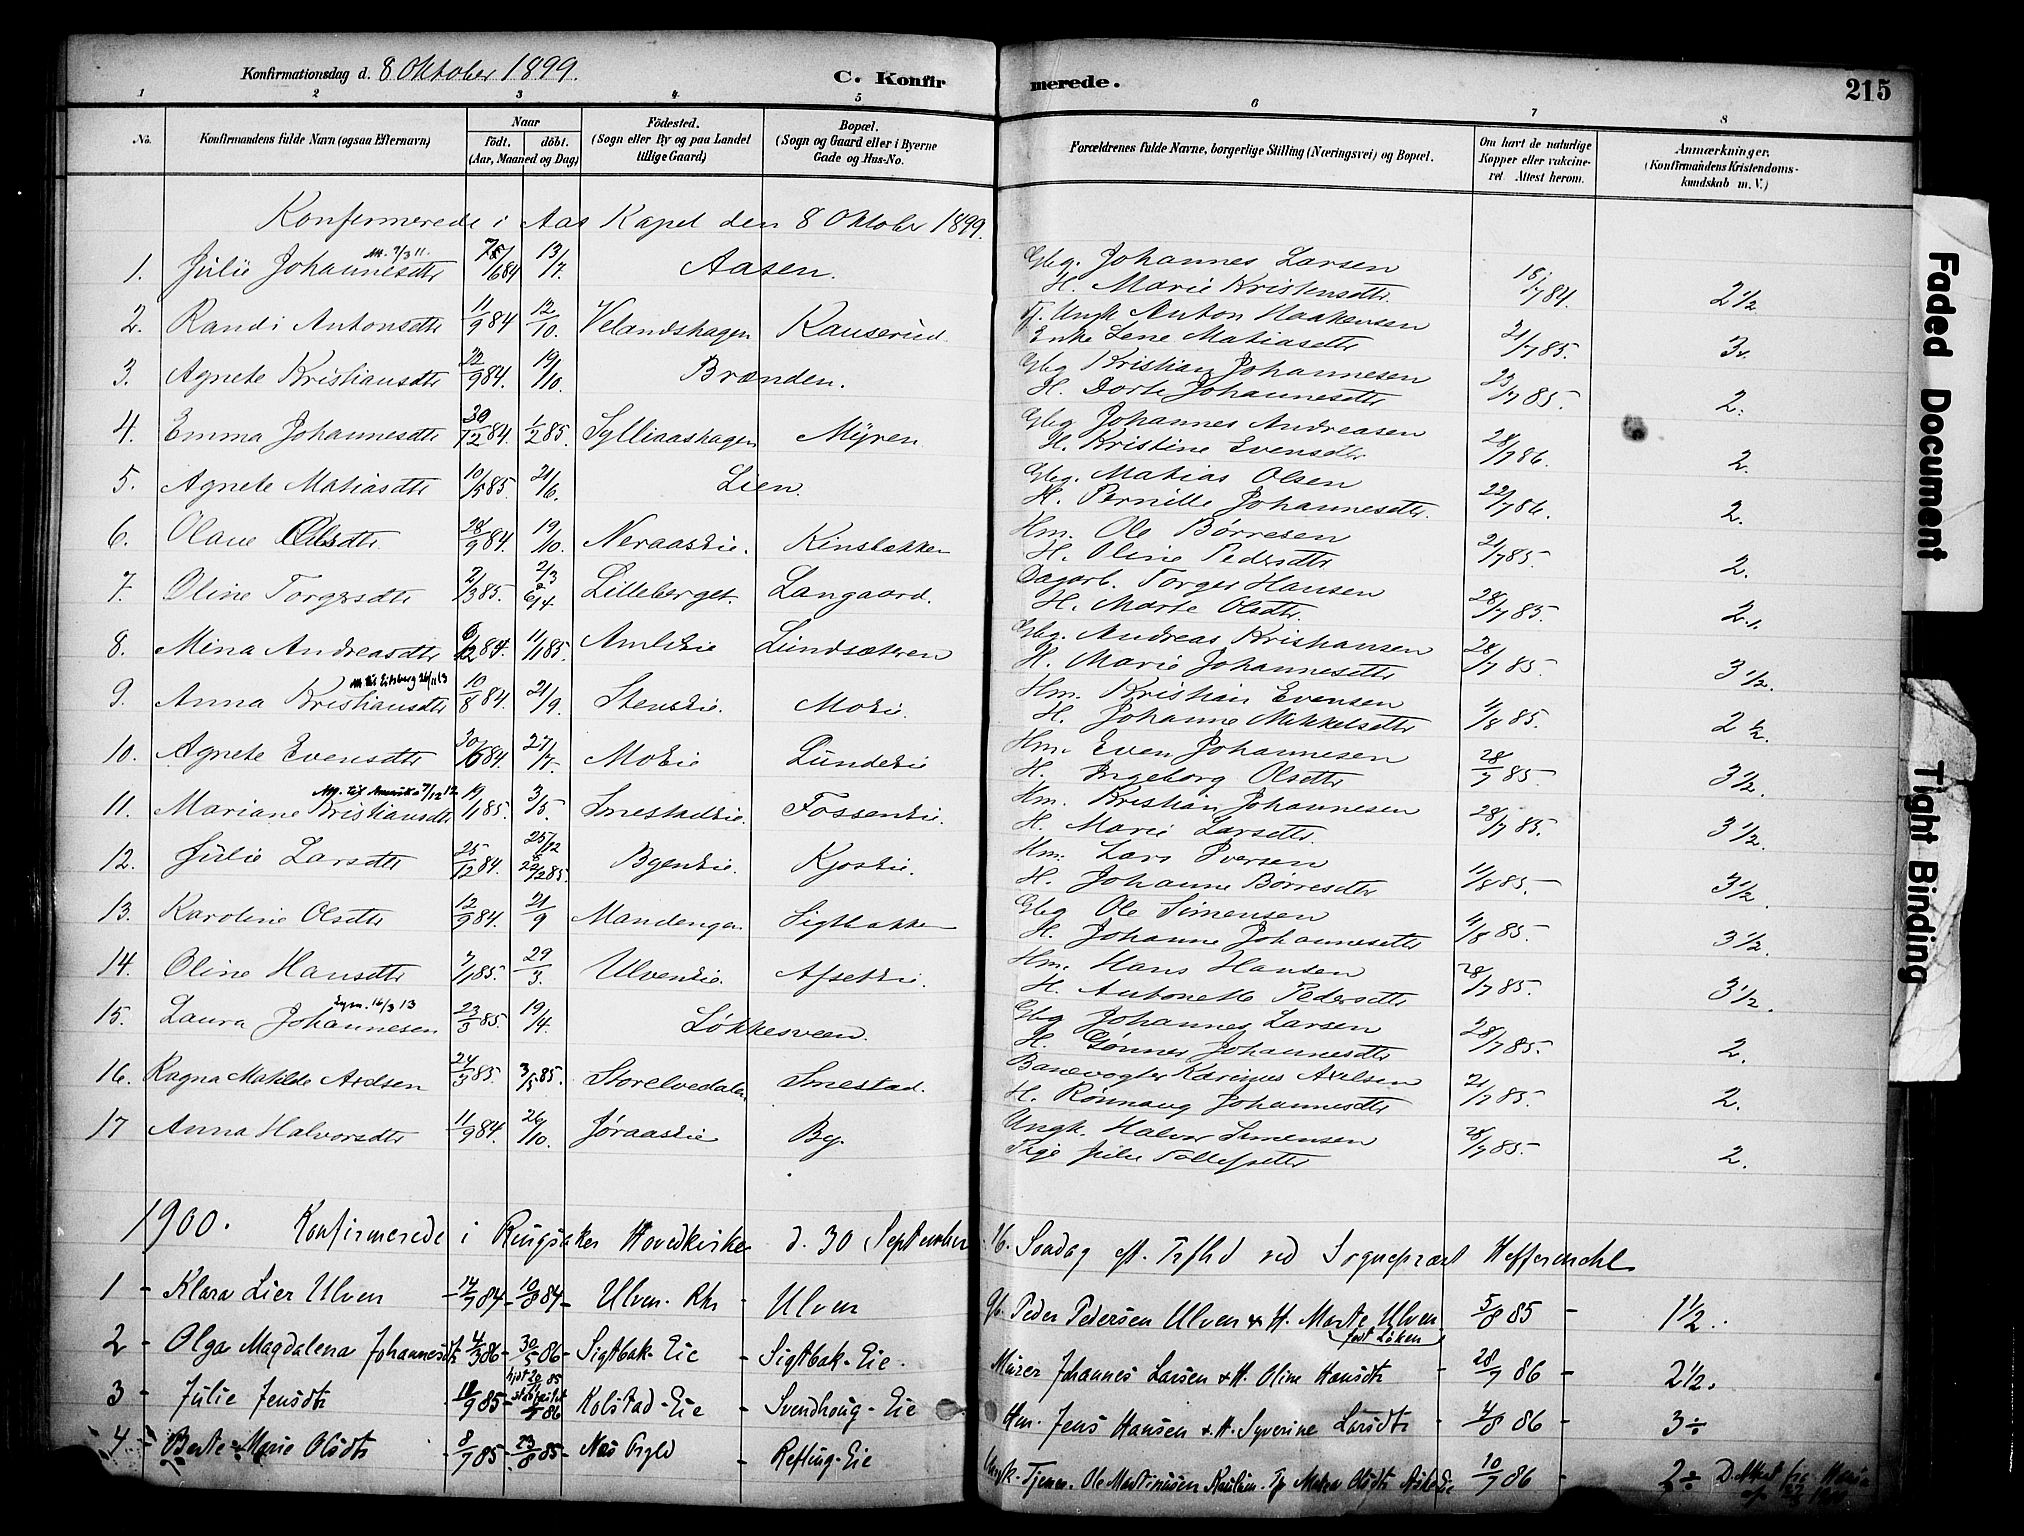 Konfirmationsdag d. 8 Oktober 1899. C. Konfirmerede. 215
1 2 3 4 5 6 7 8
No. Konfirmandens fulde Navn (ogsaa Efternavn) Naar födt. döbt. (Aar, Maaned og Dag) Födested. (Sogn eller By og paa Landet tillige Gaard) Bopæl. (Sogn og Gaard eller i Byerne Gade og Hus-No. Forældrenes fulde Navne, borgerlige Stilling (Næringsvei) og Bopæl. Om havt de naturlige Kopper eller vakcineret. Attest herom. Anmærkninger. (Konfirmandens Kristendomskundskab m. V.)
Konfirmerede i Aas Kapel den 8 Oktober 1899.
1. Julie Johannesdtr 13/7. Aasen. Gbg. Johannes Larsen
H. Marie Kristensdtr. 18/7 84. 2 1/2
2. Randi Antonsdtr 11/9 84 12/10. Velandshagen Kauserud. Ungk. Anton Haakensen
Enke Lene Matiasdtr 21/7 85. 3
3. Agnete Kristiansdtr 22/9 84. 19/10. Brænden. Gbg Kristian Johannesen
H. Dorte Johannesdtr 23/7 85. 2.
4. Emma Johannesdtr 30/12 84. 1/2 85. Sylliaashagen Myren. Gbg. Johannes Andreasen
H. Kristine Evensdtr 28/7 86. 2.
5. Agnete Matiasdtr 10/5 85. 21/6. Lien. Gbg. Matias Olsen
H. Pernille Johannesdtr. 22/7 86. 2.
6. Olave Olsdtr. 28/9 84. 19/10. Neraaseie. Kinsbakken Hm. Ole Børresen
H. Oline Pedersdtr 21/7 85. 2.
7. Oline Torgersdtr 2/3 85. 2/3 & 6/4 Lilleberget. Langaard. Dagarb. Torger Hansen
H. Marte Olsdtr. 28/7 85. 2.
8. Mina Andreasdtr 6/12 84. 11/1 85. Amleie Lundsætren Gbg. Andreas Kristiansen
H. Marie Johannesdtr 28/7 85. 3 1/2.
9. Anna Kristiansdtr 10/8 84. 21/9. Steneie. Moeie. Hm. Kristian Evensen
H. Johanne Mikkelsdtr 4/8 85. 2 1/2.
10. Agnete Evensdtr 30/6 84. 27/7. Moeie Lundeie Hm. Even Johannesen
H. Ingeborg Olsdtr 28/7 85. 3 1/2.
11. Mariane Kristiansdtr 19/1 85. 3/5. Smestadeie. Fosseneie. Hm. Kristian Johannesen
H. Marie Larsdtr. 28/7 85. 3 1/2.
12. Julie Larsdtr 25/12 84. 25/12 & 22/2 85. Byeneie. Kjoseie. Hm. Lars Iversen
H. Johanne Børresdtr 11/8 85. 3 1/2.
13. Karoline Olsdtr 12/9 84. 21/9 Mandengen. Sigtbakken Gbg Ole Simensen
H. Johanne Johannesdtr 4/8 85. 3 1/2.
14. Oline Hansdtr 7/1 85. 29/3. Ulveneie. Afseteie. Hm. Hans Hansen
H. Antonette Pedersdtr 28/7 85. 3 1/2.
15. Laura Johannesen 23/3 85. 19/4. Løkkesveen. Gbg Johannes Larsen
H. Gønner Johannesdtr 28/7 85. 2.
16. Ragna Matilde Axelsen 24/3 85. 3/5 85. Storelvedalen Smestad. Banevogter Karinus Axelsen
H. Rønnaug Johannesdtr 21/7 85. 2.
17 Anna Halvorsdtr 11/9 84. 26/10. Jøraaseie By. Ungk. Halvor Simensen
Pige Julie Tollefsdtr 28/7 85. 2.
1900. Konfirmerede i Ringsaker Hovedkirke d. 30 September 16. Søndag eft. Trfhd ved Sogneprest HefferMehl
1 - Klara Lier Ulven - 14/7 84 - 10/8 84 - Ulven. Rkr - Ulven Gb. Peder Pedersen Ulven & H. Marte Ulven født Løken 5/8 85 - 1 1/2.
2 - Olga Magdalena Johannesdtr 4/3 86 - 30/5 86 - Sigtbak-Eie - Sigtbak-Eie. Murer Johannes Larsen & H. Oline Hansdtr - 28/7 86 - 2 1/2.
3 - Julie Jensdtr - 18/9 85 - Kolstad-Eie - Svendhoug-Eie Hm. Jens Hansen & H. Syverine Larsdtr - 4/8 86 - 3÷
4 - Berte Marie Olsdtr - 8/7 85 - 23/8 85 - Næs Prgld - Refling-Eie Ungk. Tjener. Ole Martinusen & Olsdtr 10/7 86 - 2÷
Faded Document
Tight Binding